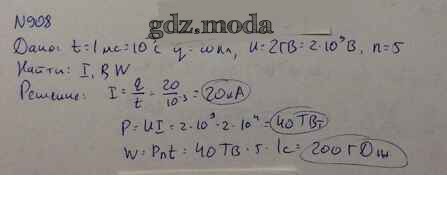 gdz.moda
N908
Дано: t=1 мс=10⁻³ с q= 20 Кл, U=2ГВ=2·10⁹В, n=5
Найти: I, P, W
Решение: I = q/t = 20/10⁻³ = 20кА
P = UI = 2·10⁹·2·10⁴ = 40ТВт
W = Pnt = 40ТВ·5·1с = 200ГДж